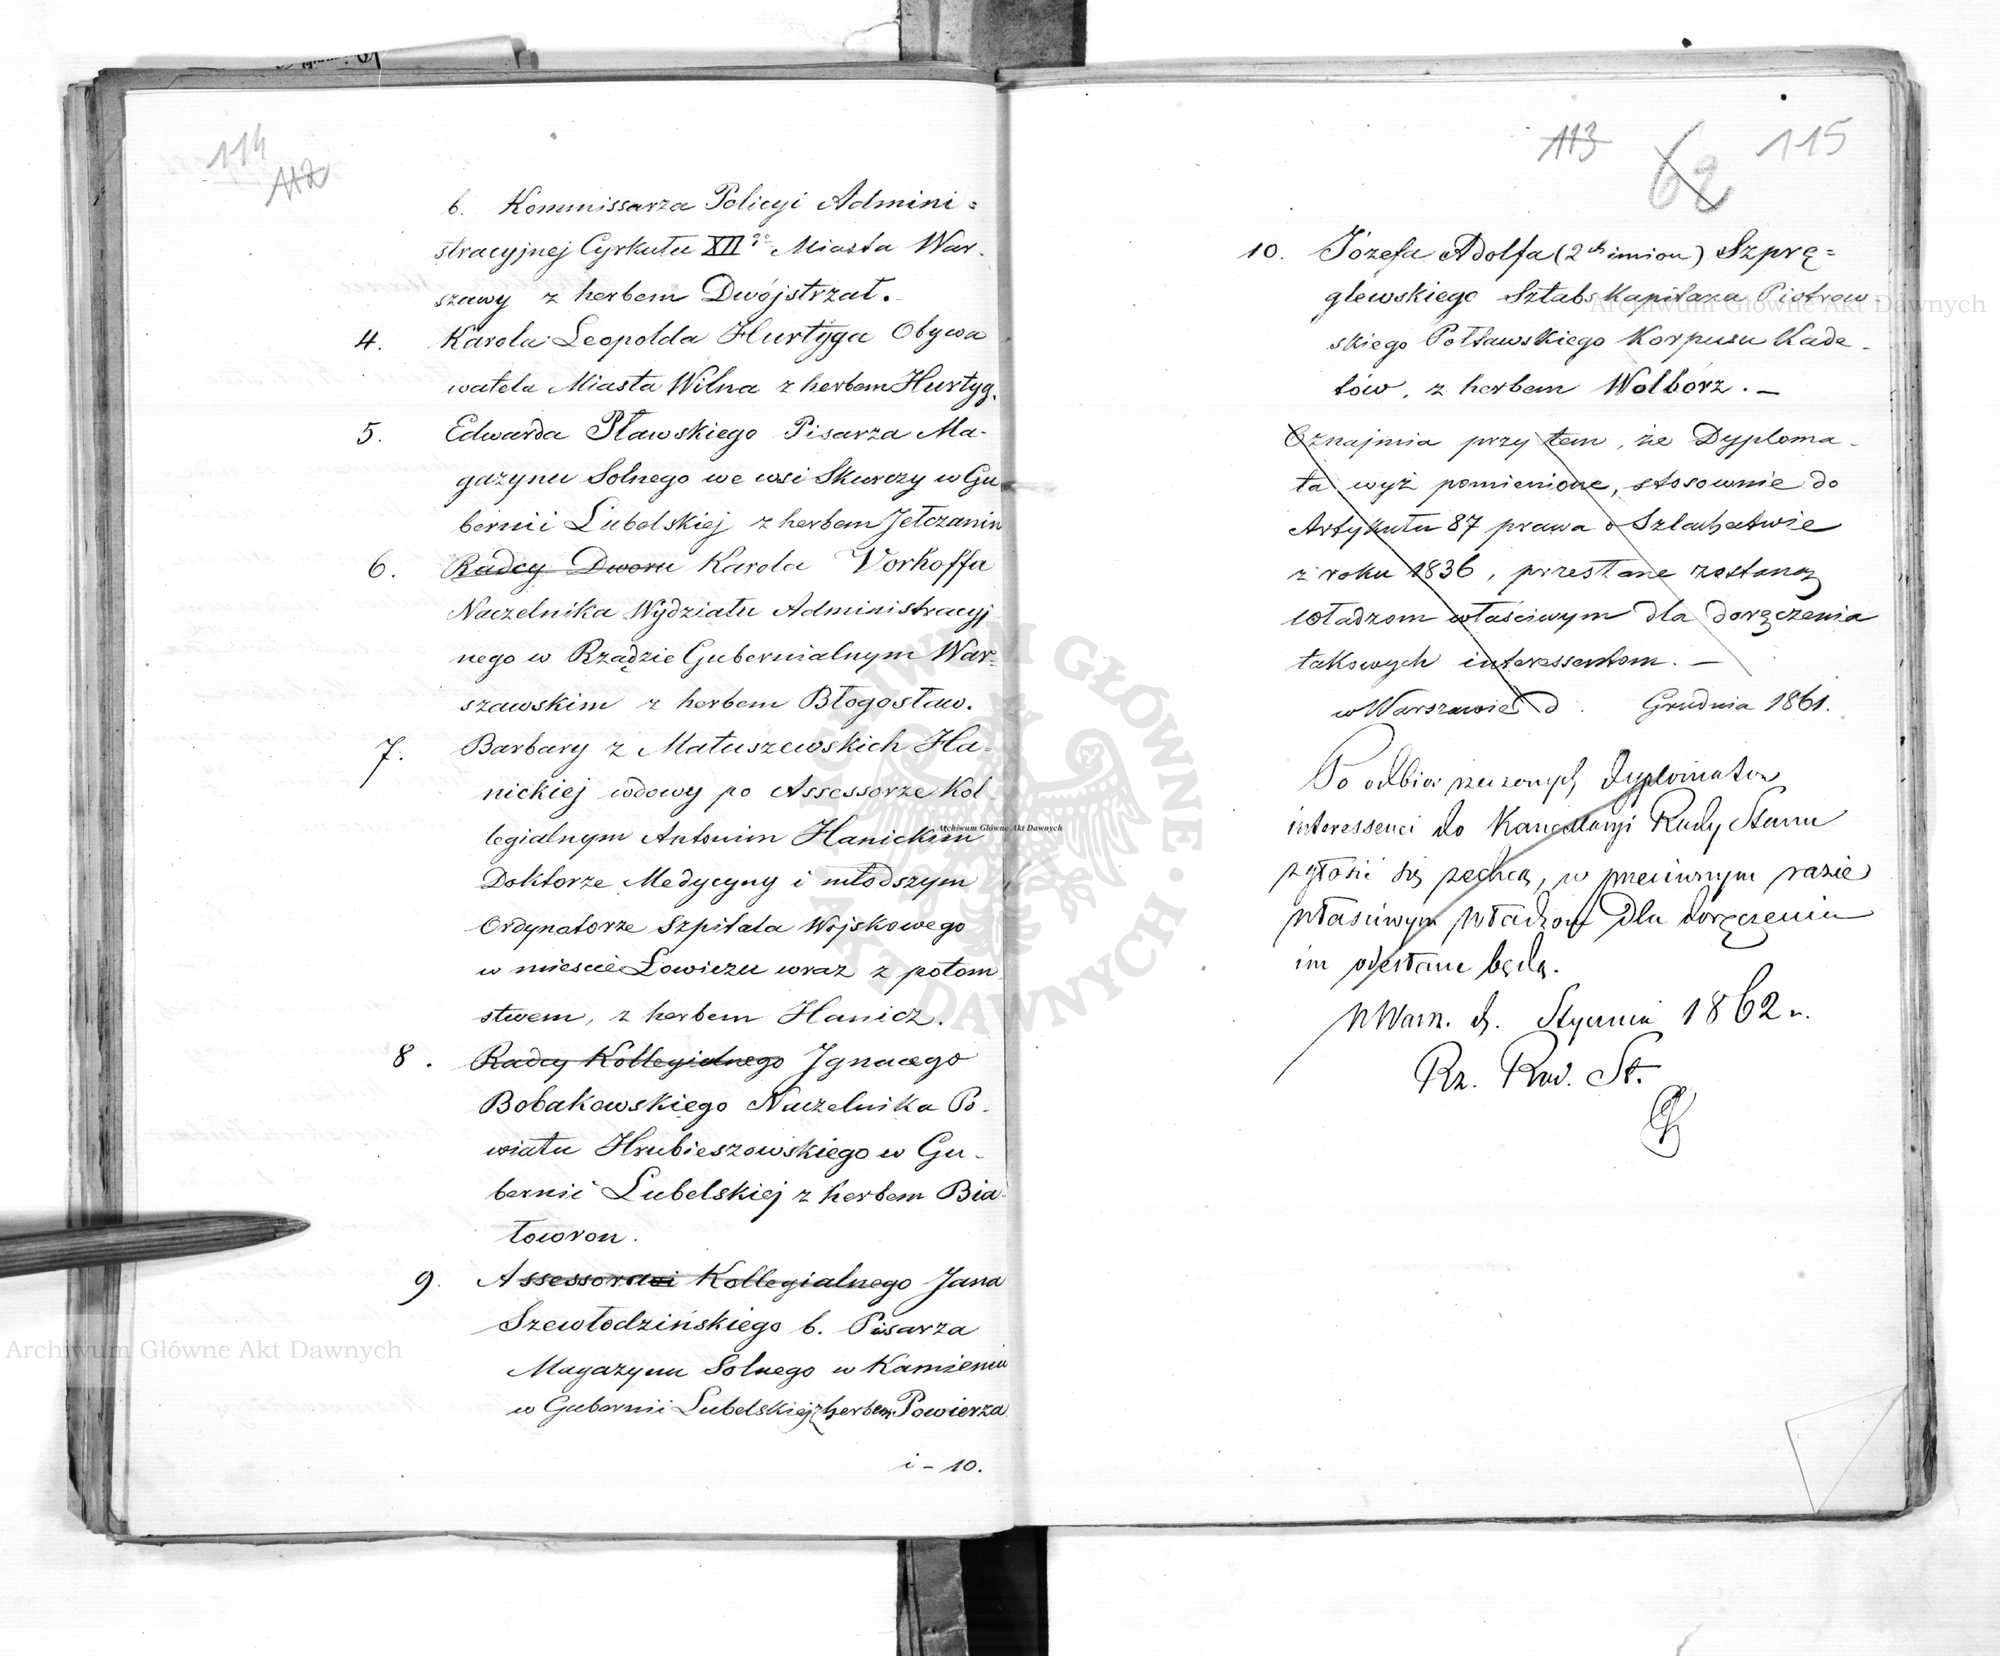 114
112
b. Kommissarza Policyi Admini=
stracyjnej Cyrkułu XII go Miasta War-
szawy z herbem Dwójstrzał.
4. Karola Leopolda Hurtyga Obywa
watela Miasta Wilna z herbem Hurtyg.
5. Edwarda Pławskiego Pisarza Ma-
gazynu Solnego we wsi Skurczy w Gu
bernii Lubelskiej z herbem Jełczanin
6. Radcy Dworu Karola Vorhoffa
Naczelnika Wydziału Administracyj
nego w Rządzie Gubernialnym War-
szawskim z herbem Błogosław.
7. Barbary z Matuszewskich Ha-
nickiej wdowy po Assessorze Kol
legialnym Antonim Hanickim
Doktorze Medycyny i młodszym
Ordynatorze Szpitala Wojskowego
w mieście Łowiczu wraz z potom
stwem, z herbem Hanicz.
8. Radcy Kollegialnego Ignacego
Bobakowskiego Naczelnika Po-
wiatu Hrubieszowskiego w Gu-
bernii Lubelskiej z herbem Bia-
łowron.
9. Assessora Kollegialnego Jana
Szewłodzińskiego b. Pisarza
Magazynu Solnego w Kamieniu
w Gubernii Lubelskiej z herbem Powierza
i - 10.
113 62 115
10. Józefa Adolfa (2ch imion) Szprę=
glewskiego Sztabskapitana Piotrow-
skiego Połtawskiego Korpusu Kade-
tów, z herbem Wolbórz. —
Oznajmia przy tem, że Dyploma-
ta wyż pomienione, stosownie do
Artykułu 87 prawa o Szlachectwie
z roku 1836, przesłane zostaną
władzom właściwym dla doręczenia
takowych interessentom. —
w Warszawie d. Grudnia 1861.
Po odbiór rzeczonych dyplomatów
interessenci do Kancellaryi Rady Stanu
zgłosić się zechcą, w przeciwnym razie
właściwym władzom dla doręczenia
im odesłane będą.
W Warsz. d. Stycznia 1862 r.
Rz. Rad. St.
Archiwum Główne Akt Dawnych
Archiwum Główne Akt Dawnych
Archiwum Główne Akt Dawnych
ARCHIWUM GŁÓWNE · AKT DAWNYCH ·